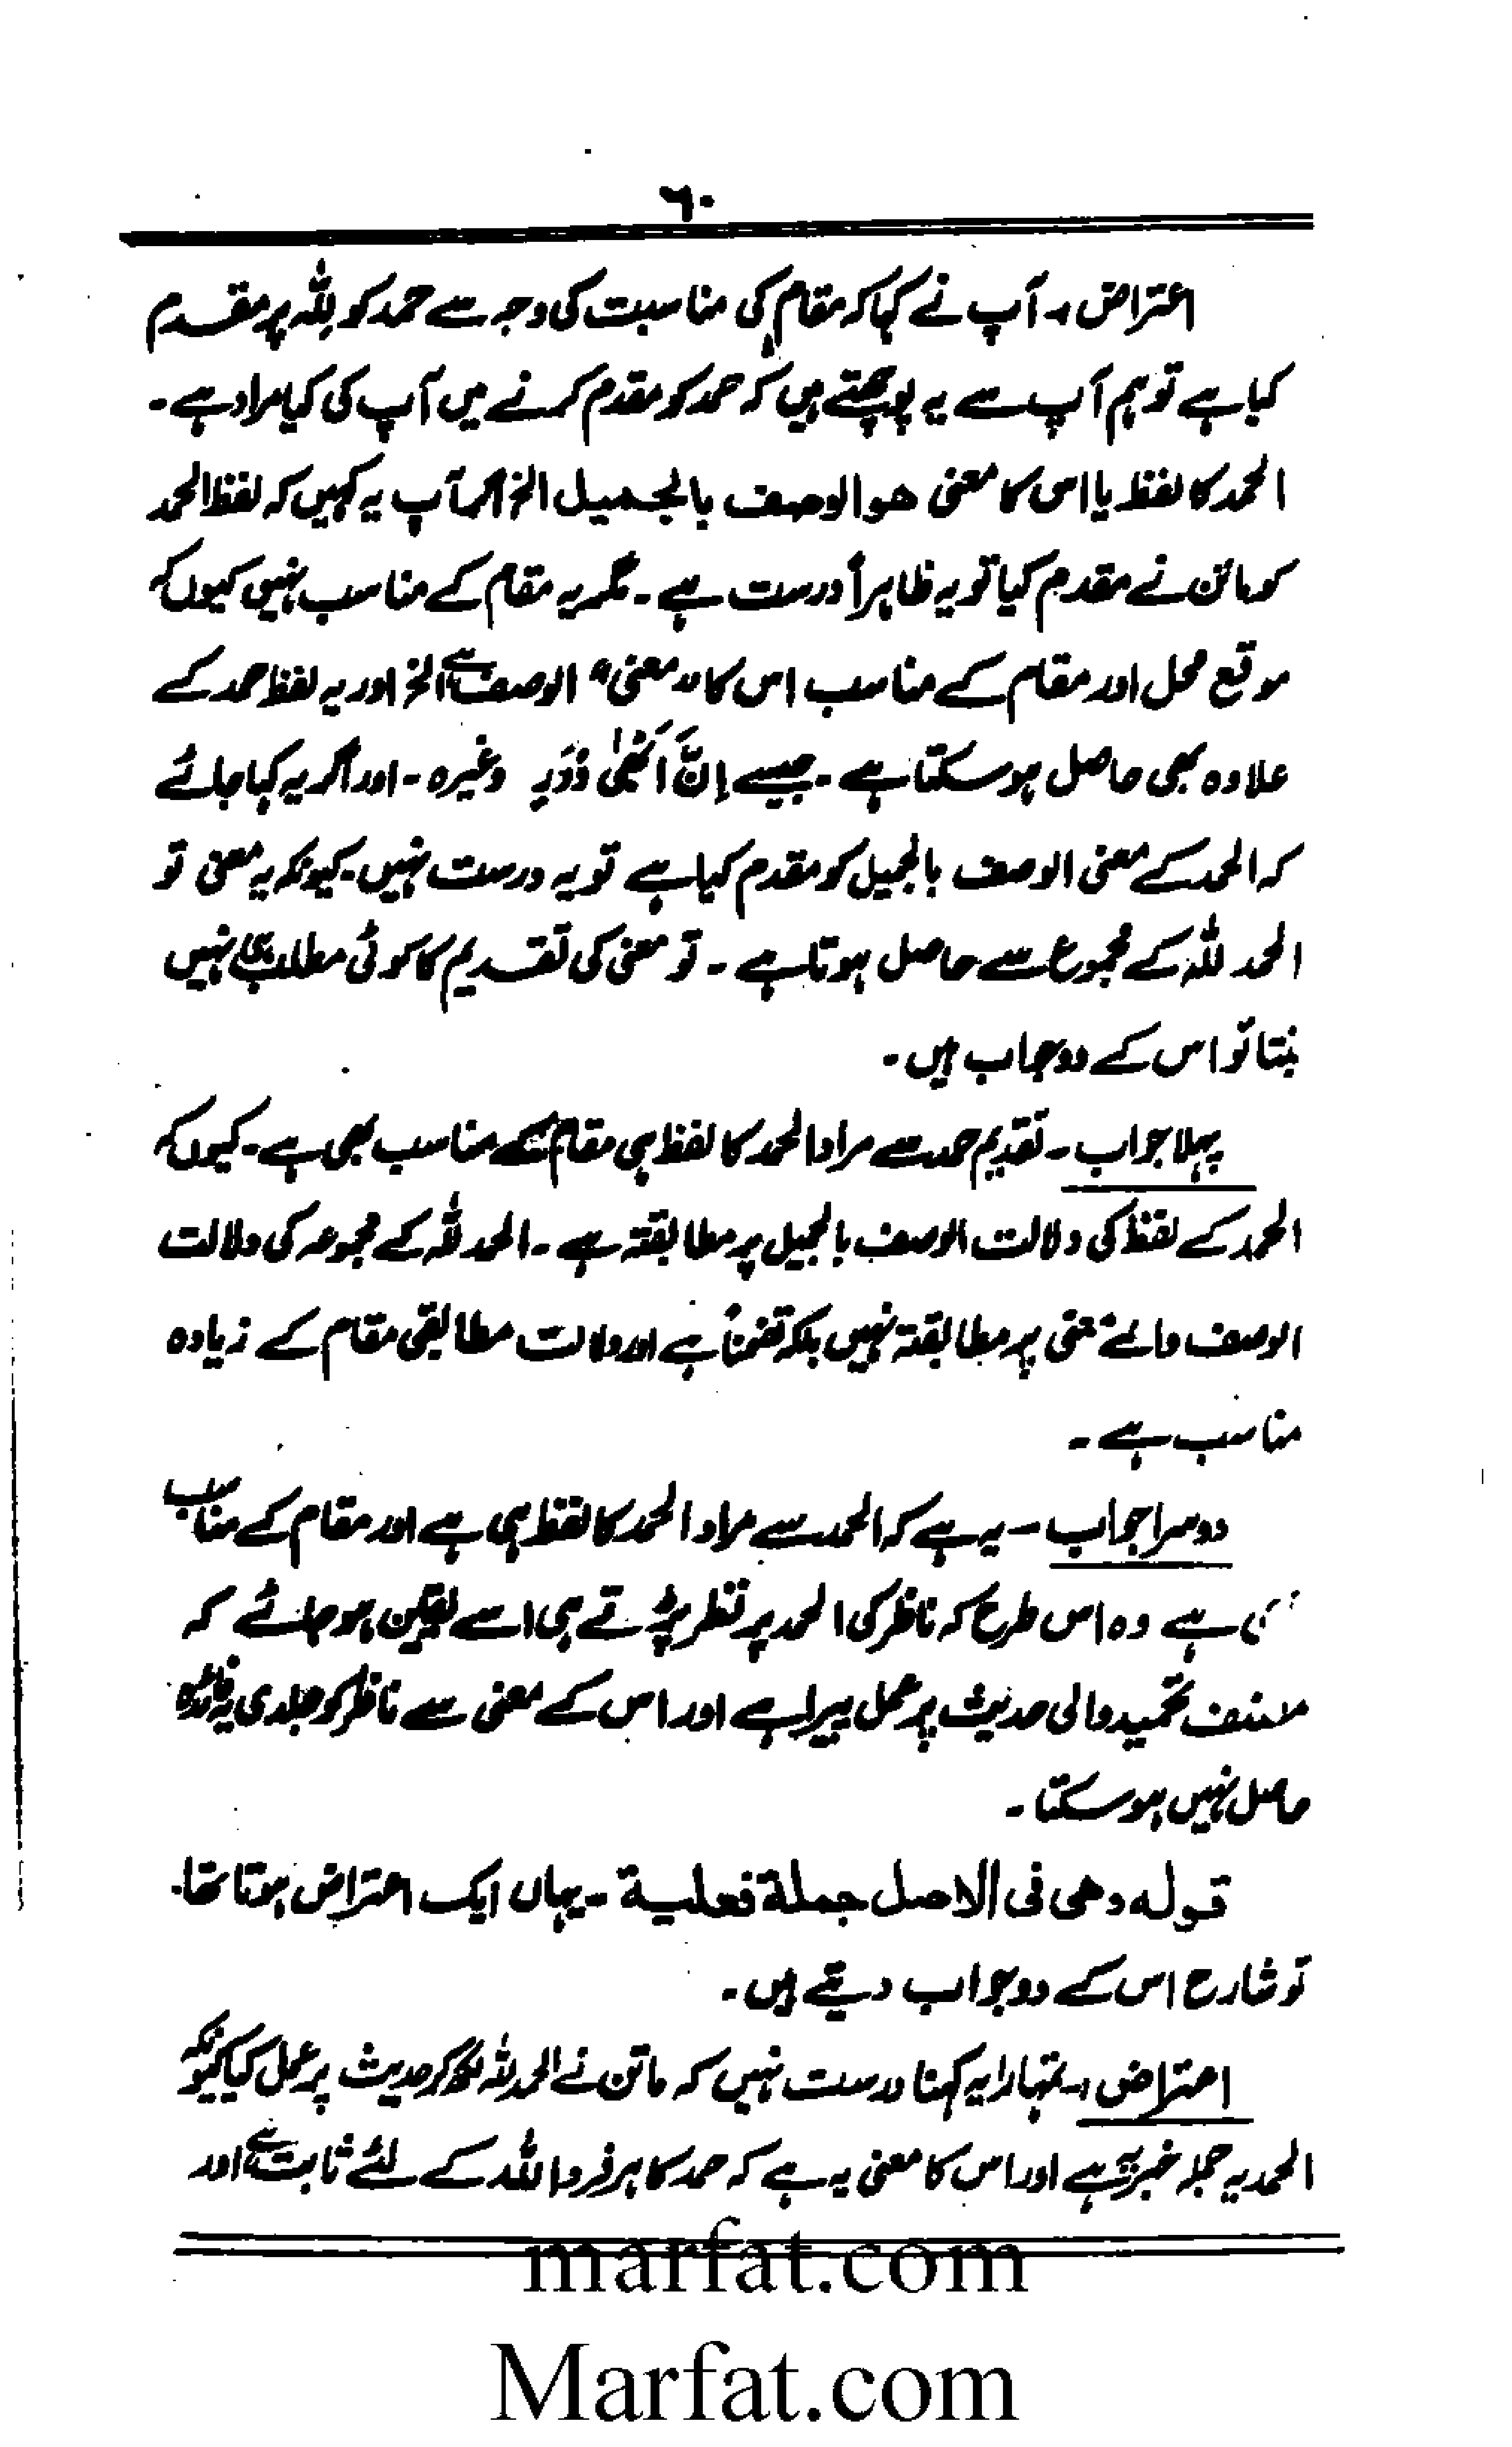 ٦٠
اعتراض :۔ آپ نے کہا کہ مقام کی مناسبت کی وجہ سے حمد کو للہ پر مقدم
کیا ہے تو ہم آپ سے یہ پوچھتے ہیں کہ حمد کو مقدم کرنے میں آپ کی کیا مراد ہے ۔
الحمد کا لفظ یا اس کا معنی ھو الوصف بالجمیل الخ اگر آپ یہ کہیں کہ لفظ الحمد
کو ماتن نے مقدم کیا تو یہ ظاہراً درست ہے ۔ مگر یہ مقام کے مناسب نہیں کیوں کہ
موقع محل اور مقام کے مناسب اس کا “معنی” الوصف ہے الخ اور یہ لفظ حمد کے
علاوہ بھی حاصل ہو سکتا ہے ۔ جیسے اِنَّ وغیرہ ۔ اور اگر یہ کہا جائے
کہ الحمد کے معنی الوصف بالجمیل کو مقدم کیا ہے تو یہ درست نہیں ۔ کیونکہ یہ معنی تو
الحمد للہ کے مجموع سے حاصل ہوتا ہے ۔ تو معنی کی تقدیم کا کوئی مطلب ہی نہیں
بنتا تو اس کے دو جواب ہیں ۔
پہلا جواب ۔ تقدیم حمد سے مراد الحمد کا لفظ ہی مقام کے مناسب بھی ہے ۔ کیوں کہ
الحمد کے لفظ کی دلالت الوصف بالجمیل پر مطابقتہ ہے ۔ الحمد للہ کے مجموعہ کی دلالت
الوصف والے معنی پر مطابقتہ نہیں بلکہ تضمناً ہے اور دلالت مطابقی مقام کے زیادہ
مناسب ہے ۔
دوسرا جواب ۔ یہ ہے کہ الحمد سے مراد الحمد کا لفظ ہی ہے اور مقام کے مناسب
ہے وہ اس طرح کہ ناظر کی الحمد پر نظر پڑتے ہی اسے یقین ہو جائے کہ
مصنف تحمید والی حدیث پر عمل پیرا ہے اور اس کے معنی سے ناظر کو جلدی یہ فائدہ
حاصل نہیں ہو سکتا ۔
قولہ وھی فی الاصل جملة فعلیة ۔ یہاں ایک اعتراض ہوتا تھا ۔
تو شارح اس کے دو جواب دیتے ہیں ۔
اعتراض :۔ تمہارا یہ کہنا درست نہیں کہ ماتن نے الحمد للہ کہہ کر حدیث پر عمل کیا کیونکہ
الحمد یہ جملہ خبریہ ہے اور اس کا معنی یہ ہے کہ حمد کا ہر فرد اللہ کے لئے ثابت ہے اور
marfat.com
Marfat.com